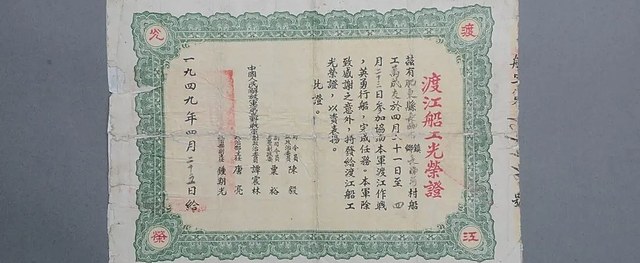 渡
江
光
榮
渡江船工光榮證
茲有肥東縣鄉鎮村船
工萬成於四月二十一日至四
月二十三日參加協助本軍渡江作戰
，英勇行船，完成任務。本軍除
致感謝之意外，特發給渡江船工
光榮證，以資表揚。
此證。
中國人民解放軍
司令員 陳毅
粟裕
譚震林
唐亮
鍾期光
一九四九年四月二十日給